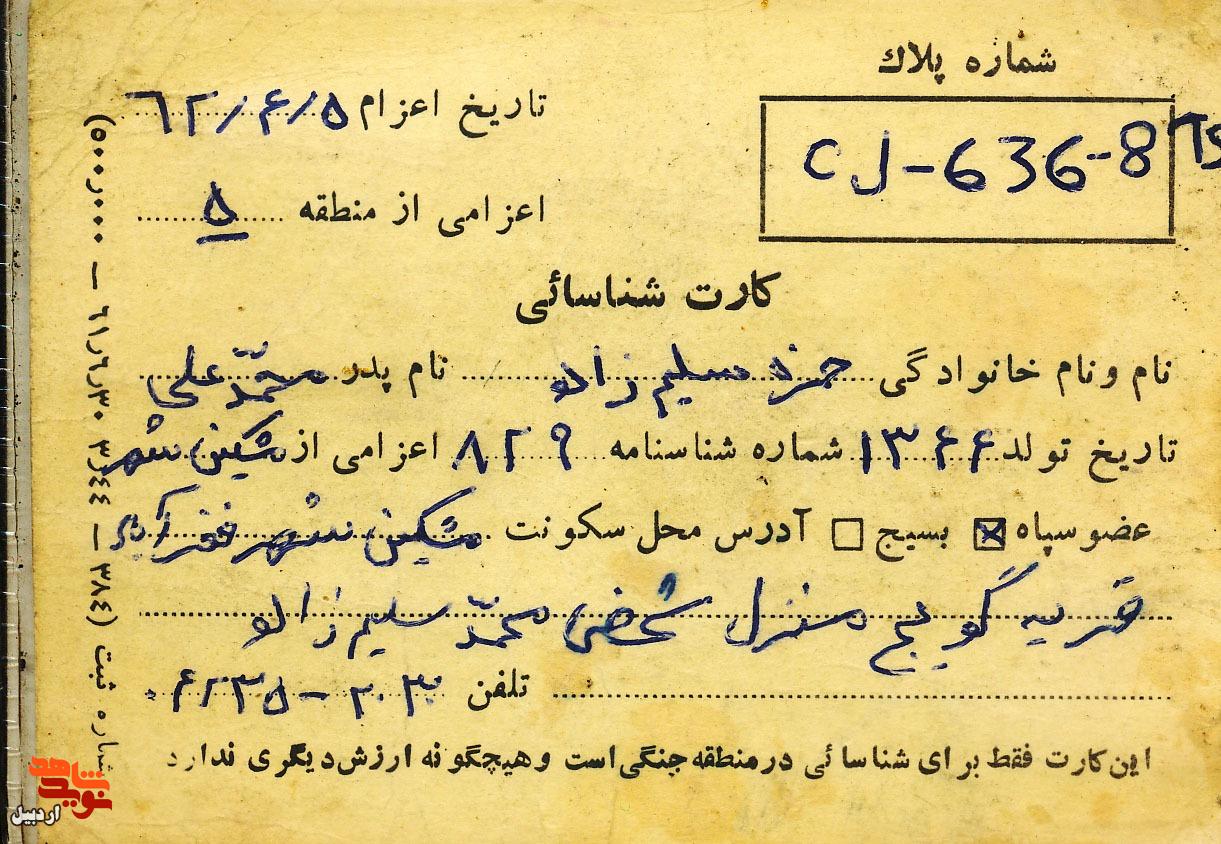 شماره پلاك
CJ-636-8
تاریخ اعزام ٦٢/۶/۵
اعزامی از منطقه ۵
کارت شناسائی
نام ونام خانوادگی حمزه سلیم زاده نام پدر محمّد علی
تاریخ تولد ۱۳۴۴ شماره شناسنامه ۸۲۹ اعزامی از مشکین شهر
عضو سپاه ☒ بسیج ☐ آدرس محل سکونت مشکین شهر
قریه گویج منزل شخصی محمّد سلیم زاده
تلفن
این کارت فقط برای شناسائی در منطقه جنگی است وهیچگونه ارزش دیگری ندارد
شماره ثبت (٣٨٤ – ٣٫٤٤ ٦١٫٦٫٣٠ – ٥٠٠٫٠٠٠)
نوید شاهد
اردبیل